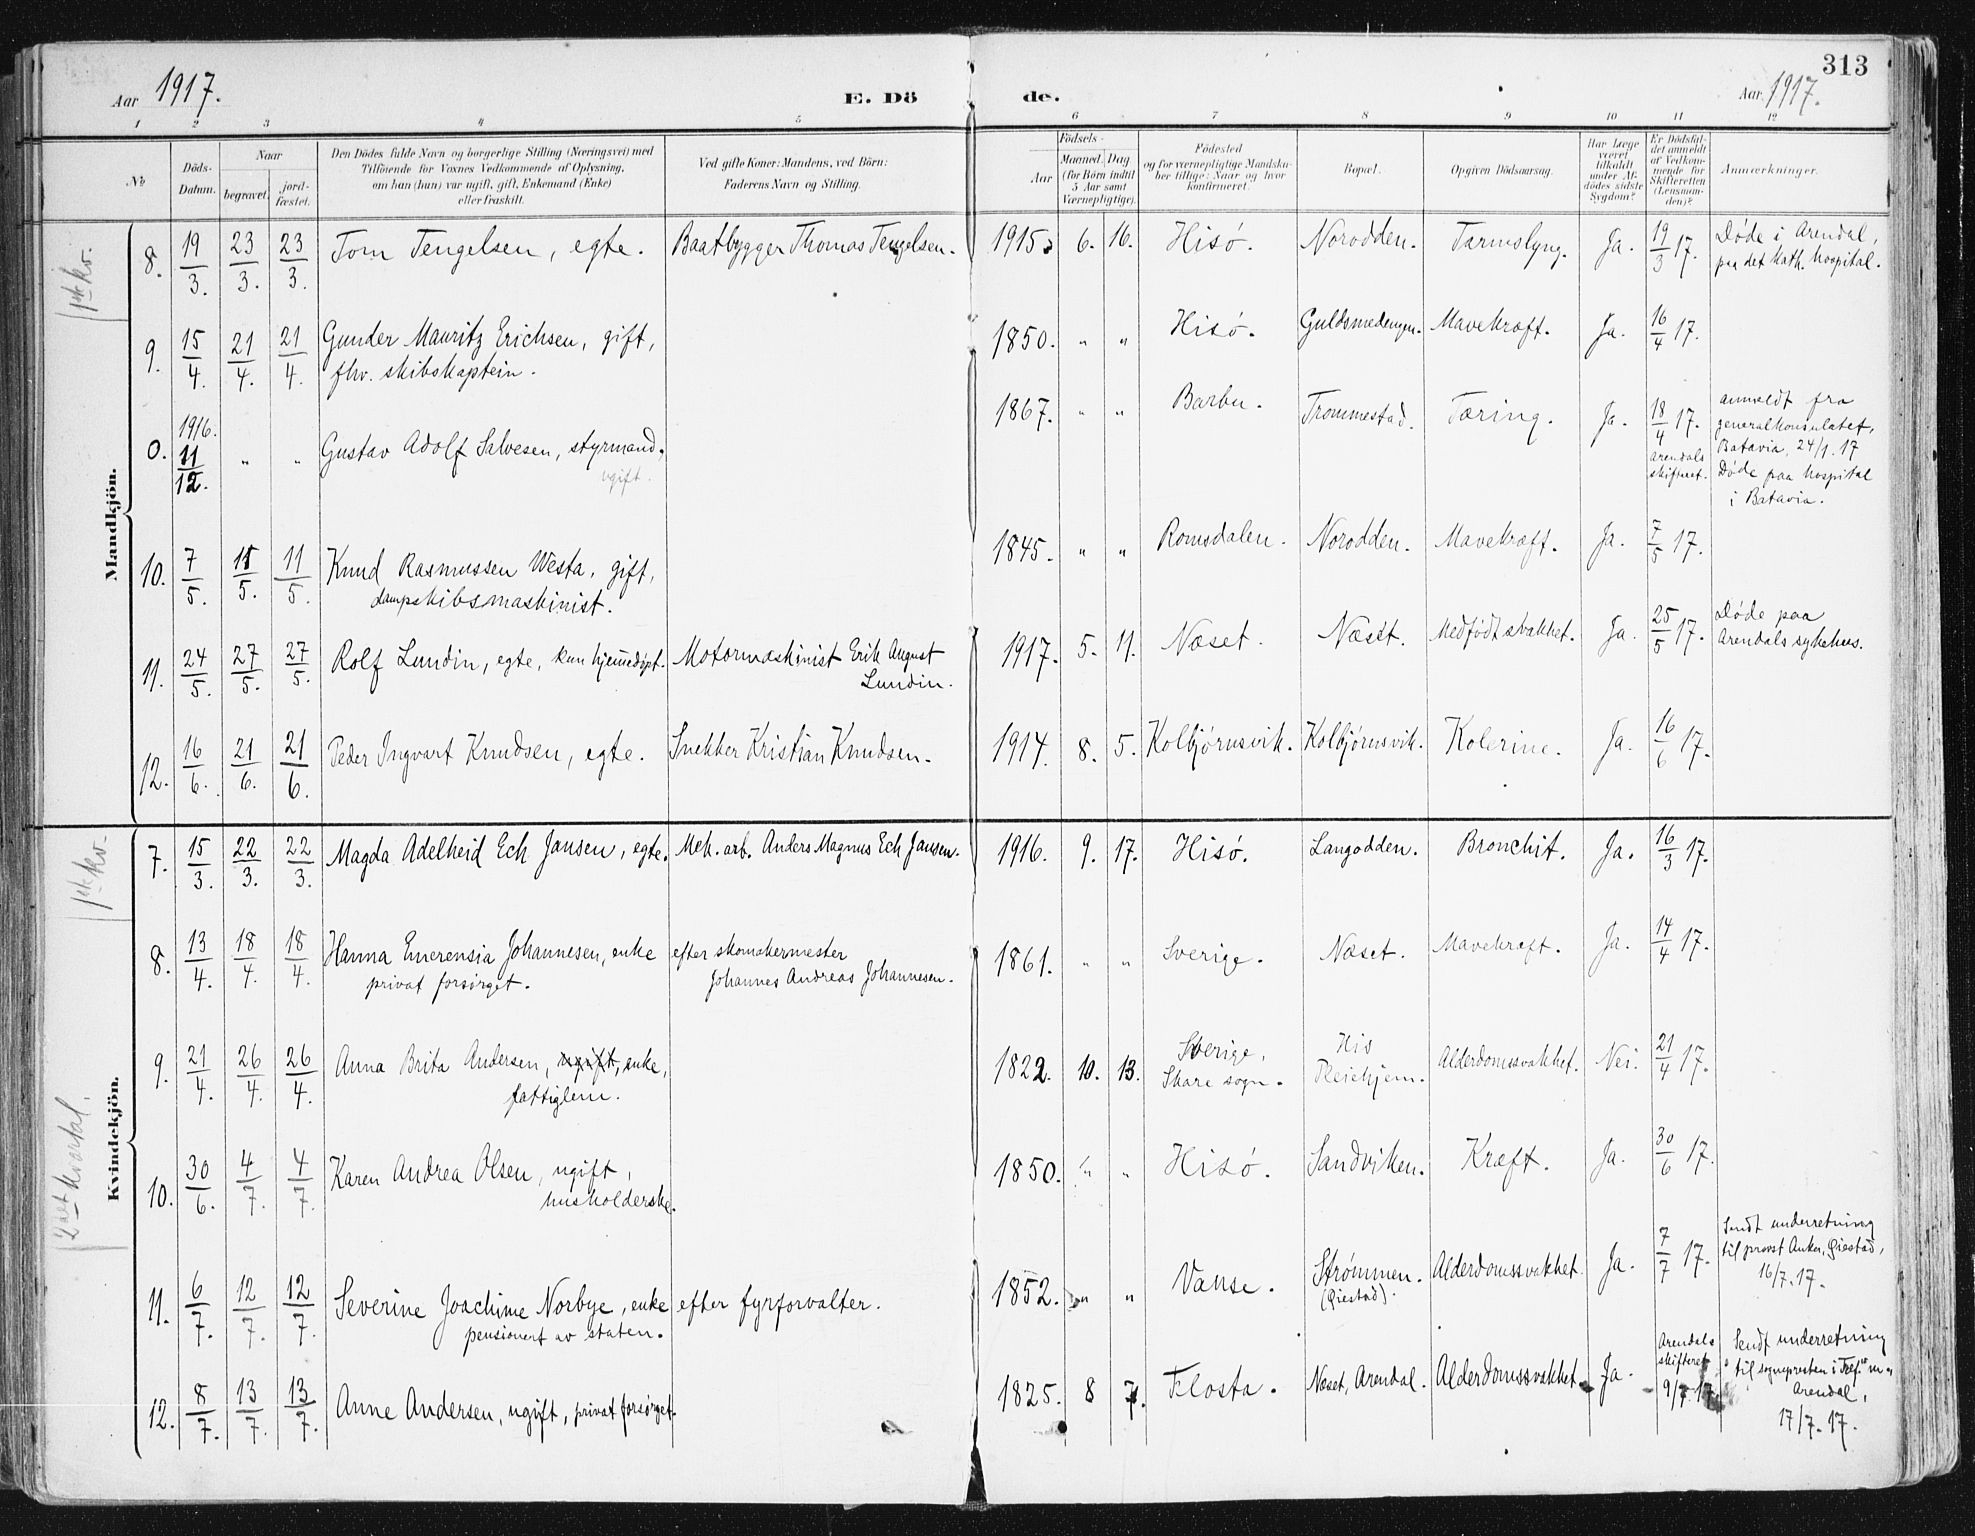 313
Aar 1917. E. Dö de. Aar 1917.
1 2 3 4 5 6 7 8 9 10 11 12
№ Döds-Datum. Naar begravet. jord-fæstet. Den Dödes fulde Navn og borgerlige Stilling (Næringsvei) med Tilföiende for Voxnes Vedkommende af Oplysning, om han (hun) var ugift, gift, Enkemand (Enke) eller fraskilt. Ved gifte Koner: Mandens, ved Börn: Faderens Navn og Stilling. Födsels- Aar Maaned. Dag (for Börn indtil 5 Aar samt Værnepligtige). Födested og for værnepligtige Mandskaber tillige: Naar og hvor konfirmeret. Bopæl. Opgiven Dödsaarsag. Har Læge været tilkaldt under Afdödes sidste Sygdom? Er Dödsfaldet anmeldt af Vedkommende for Skifteretten (Lensmanden)? Anmærkninger.
1ste kv.
Mandkjön.
8. 19/3. 23/3. 23/3. Tom Tengelsen, egte. Baatbygger Thomas Tengelsen. 1915. 6. 16. Hisö. Norodden. Tarmslyng. Ja. 19/3 17. Döde i Arendal, paa det kath. hospital.
9. 15/4. 21/4. 21/4. Gunder Mauritz Erichsen, gift, fhv. skibskaptein. 1850. " " Hisö. Guldsmedengen. Mavekræft. Ja. 16/4 17.
0. 1916. 11/12. " " Gustav Adolf Salvesen, styrmand, ugift. 1867. " " Barbu. Trommestad. Tæring. Ja. 18/4 17. Arendals skifteret. anmeldt fra generalkonsulatet, Batavia, 24/1. 17 Döde paa hospital i Batavia.
10. 7/5. 11/5. 11/5. Knud Rasmussen Westa, gift, dampskibsmaskinist. 1845. " " Romsdalen. Norodden. Mavekræft. Ja. 7/5 17.
11. 24/5. 27/5. 27/5. Rolf Lundin, egte, kun hjemmedöpt. Motormaskinist Erik August Lundin. 1917. 5. 11. Næset. Næset. Medfödt svakhet. Ja. 25/5 17. Döde paa Arendals sykehus.
12. 16/6. 21/6. 21/6. Peder Ingvart Knudsen, egte. Snekker Kristian Knudsen. 1914. 8. 5. Kolbjörnsvik. Kolbjörnsvik. Kolerine. Ja. 16/6 17.
1ste kv.
2det kvartal.
Kvindekjön.
7. 15/3. 22/3. 22/3. Magda Adelheid Eck Jansen, egte. Mek. arb. Anders Magnus Eck Jansen. 1916. 9. 17. Hisö. Langodden. Bronchit. Ja. 16/3 17.
8. 13/4. 18/4. 18/4. Hanna Emerensia Johannesen, enke privat forsörget. efter skomakermester Johannes Andreas Johannesen. 1861. " " Sverige. Næset. Mavekræft. Ja. 14/4 17.
9. 21/4. 26/4. 26/4. Anna Brita Andersen, ugift, enke, fattiglem. 1822. 10. 13. Sverige, Skare sogn. His Pleiehjem. Alderdomssvakhet. Nei. 21/4 17.
10. 30/6. 4/7. 4/7. Karen Andrea Olsen, ugift, husholderske. 1850. " " Hisö. Sandviken. Kræft. Ja. 30/6 17.
11. 6/7. 12/7. 12/7. Severine Joachime Norbye, enke pensionert av staten. efter fyrforvalter. 1852. " " Vanse. Strömmen. (Öiestad). Alderdomssvakhet. Ja. 7/7 17. Sendt underretning til provst Anker, Öiestad, 16/7. 17.
12. 8/7. 13/7. 13/7. Anne Andersen, ugift, privat forsörget. 1825. 8 7. Flosta. Næset, Arendal. Alderdomssvakhet. Ja. Arendals skifteret 9/7. 17. Sendt underretning til sognepresten i Aren­dal, 17/7. 17.